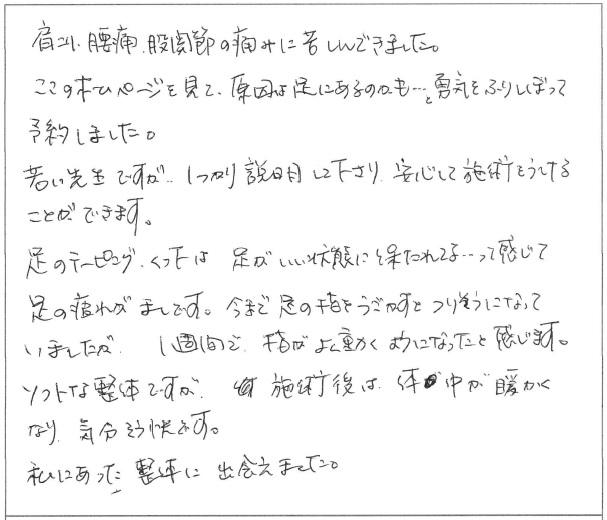 肩こり、腰痛、股関節の痛みに苦しんできました。
ここのホームページを見て、原因は足にあるのかも…と勇気をふりしぼって
予約しました。
若い先生ですが、しっかり説明して下さり、安心して施術をうける
ことができます。
足のテーピング、くつ下は 足がいい状態に保たれてる…って感じで
足の疲れがましです。今まで足の指をうごかすと つりそうになって
いましたが、1週間で、指がよく動くようになったと感じます。
ソフトな整体ですが、施術後は、体中が暖かく
なり、気分そう快です。
私にあった整体に出会えました。